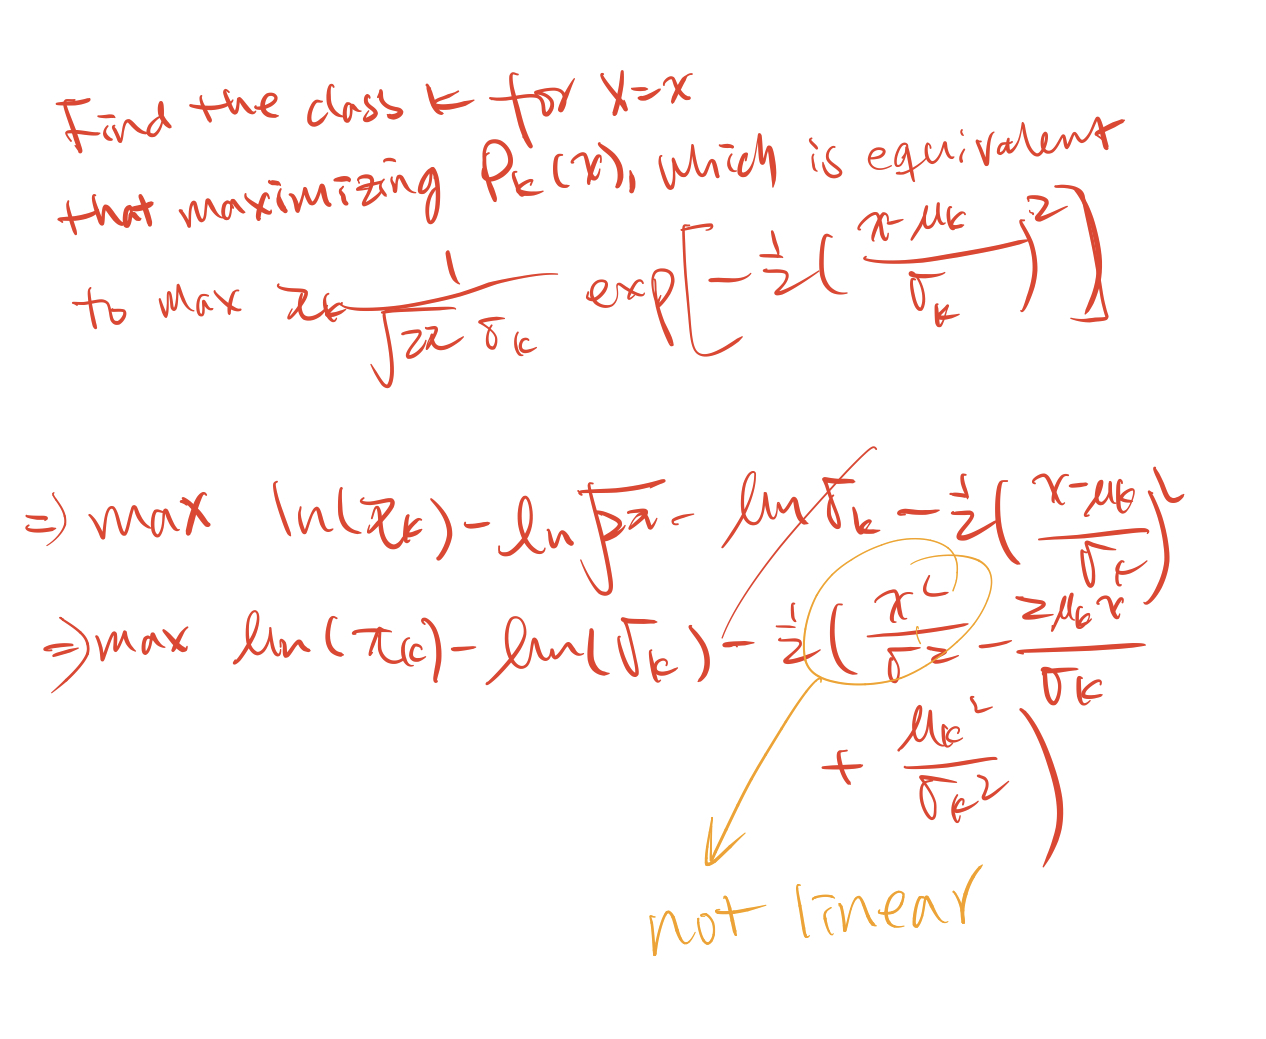 Find the class k for X=x
that maximizing Pₖ(x), which is equivalent
to max πₖ 1/(√2π σₖ) exp[-½((x-μₖ)/σₖ)²]
⇒ max ln(πₖ) - ln√2π - lnσₖ - ½((x-μₖ)/σₖ)²
⇒ max ln(πₖ) - ln(σₖ) - ½(x²/σ² - 2μₖx/σₖ
+ μₖ²/σₖ²)
not linear